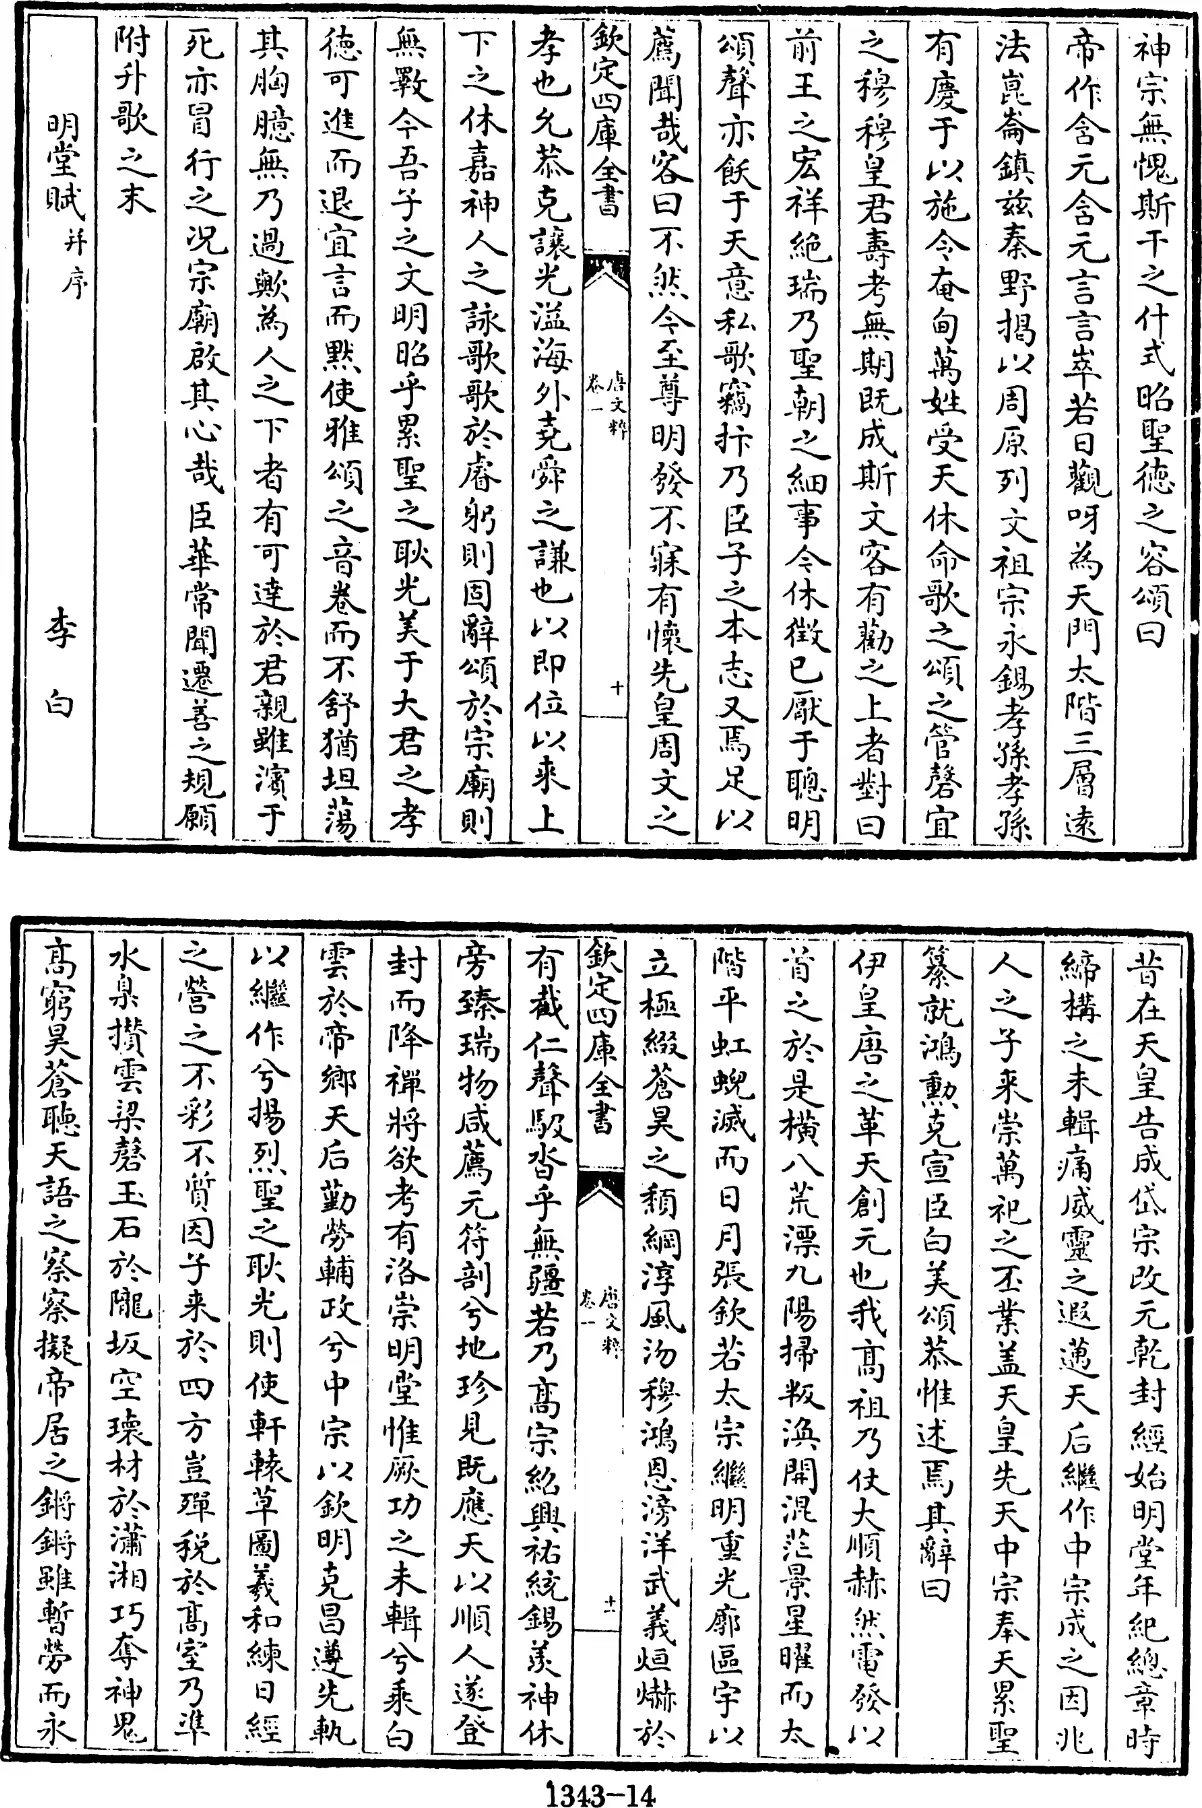 神宗無愧斯干之什式昭聖徳之容頌曰
帝作含元含元言言崒若日觀呀為天門太階三層逺
法崑崙鎮兹秦野揭以周原列文祖宗永錫孝孫孝孫
有慶于以施令奄甸萬姓受天休命歌之頌之管磬宜
之穆穆皇君壽考無期既成斯文客有勸之上者對曰
前王之宏祥絶瑞乃聖朝之細事今休徴已厭于聰明
頌聲亦飫于天意私歌竊抃乃臣子之本志又焉足以
薦聞哉客曰不然今至尊明發不寐有懷先皇周文之
欽定四庫全書
唐文粹
卷一
十
孝也允恭克讓光溢海外堯舜之謙也以即位以來上
下之休嘉神人之詠歌歌於睿躬則固辭頌於宗廟則
無斁今吾子之文明昭乎累聖之耿光美于大君之孝
徳可進而退宜言而黙使雅頌之音卷而不舒猶坦蕩
其胸臆無乃過歟為人之下者有可達於君親雖濱于
死亦冒行之況宗廟啟其心哉臣華常聞遷善之規願
附升歌之末
明堂賦并序
李白
昔在天皇告成岱宗改元乾封經始明堂年紀總章時
締構之未輯痛威靈之遐邁天后繼作中宗成之因兆
人之子來崇萬祀之丕業蓋天皇先天中宗奉天累聖
纂就鴻勲克宣臣白美頌恭惟述焉其辭曰
伊皇唐之革天創元也我髙祖乃仗大順赫然電發以
首之於是横八荒漂九陽掃叛渙開混茫景星曜而太
階平虹蜺滅而日月張欽若太宗繼明重光廓區宇以
立極綴蒼昊之頽綱淳風沕穆鴻恩滂洋武義烜爀於
欽定四庫全書
唐文粹
卷一
十一
有截仁聲馺沓乎無疆若乃髙宗紹興祐統錫羨神休
旁臻瑞物咸薦元符剖兮地珍見既應天以順人遂登
封而降禪將欲考有洛崇明堂惟厥功之未輯兮乘白
雲於帝鄉天后勤勞輔政兮中宗以欽明克昌遵先軌
以繼作兮揚烈聖之耿光則使軒轅草圖羲和練日經
之營之不彩不質因子来於四方豈殫税於髙室乃凖
水臬攅雲梁磬玉石於隴坂空瓌材於瀟湘巧奪神鬼
髙窮昊蒼聽天語之察察擬帝居之鏘鏘雖暫勞而永
1343-14